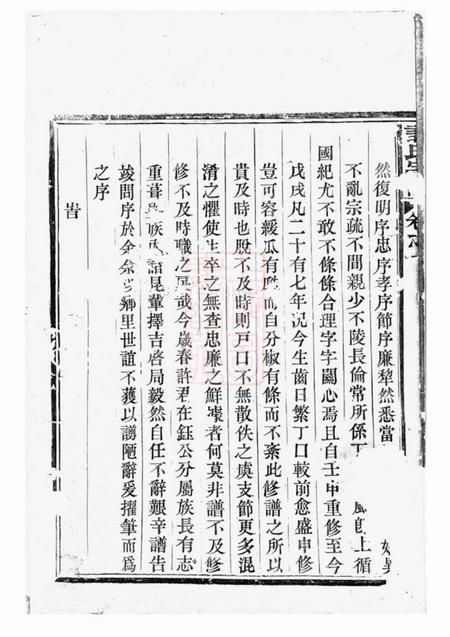 然復明序忠序孝序節序廉犂然悉當
不亂宗疏不間親少不陵長倫常所係 上循
國紀尤不敢不條條合理字字關心焉且自壬申重修至今
戊戌凡二十有七年況今生齒日繁丁口較前愈盛申修
豈可容緩瓜有 而自分椒有條而不紊此修譜之所以
貴及時也既不及時則戸口不無散佚之虞支節更多混
淆之懼使生卒之無查忠廉之鮮 者何莫非譜不及修
修不及時職之 哉今歲春許君在鈺公分屬族長有志
重葺 族 諸昆輩擇吉啓局毅然自任不辭艱辛譜告
竣問序於余余 鄉里世誼不獲以謭陋辭爰擢筆而爲
之序
旹